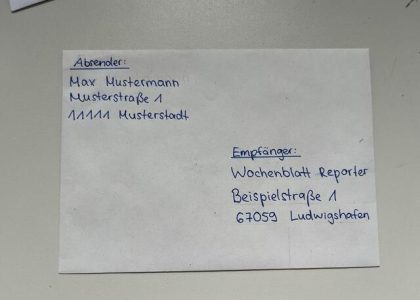 Absender:
Max Mustermann
Musterstraße 1
11111 Musterstadt
Empfänger:
Wochenblatt Reporter
Beispielstraße 1
67059 Ludwigshafen